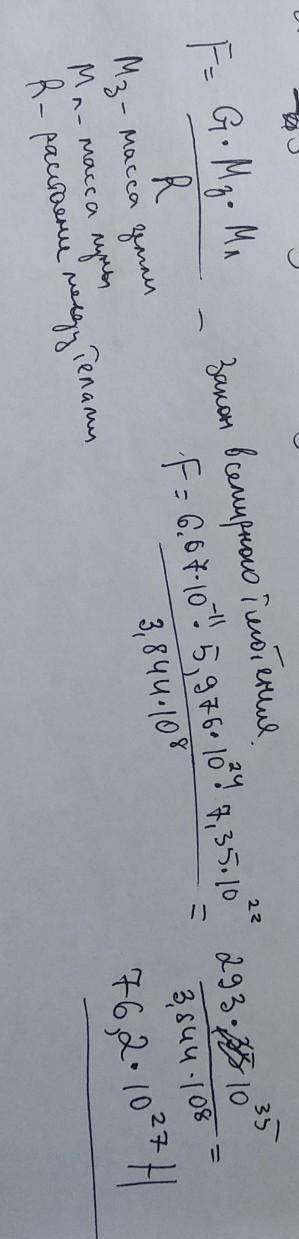 F = G · Mз · Mл / R — Закон всемирного тяготения.
Mз – масса земли
Mл – масса луны
R – расстояние между телами
F = 6,67·10^-11 · 5,976·10^24 · 7,35·10^22 / 3,844·10^8 = 293·10^35 / 3,844·10^8 =
76,2·10^27 Н